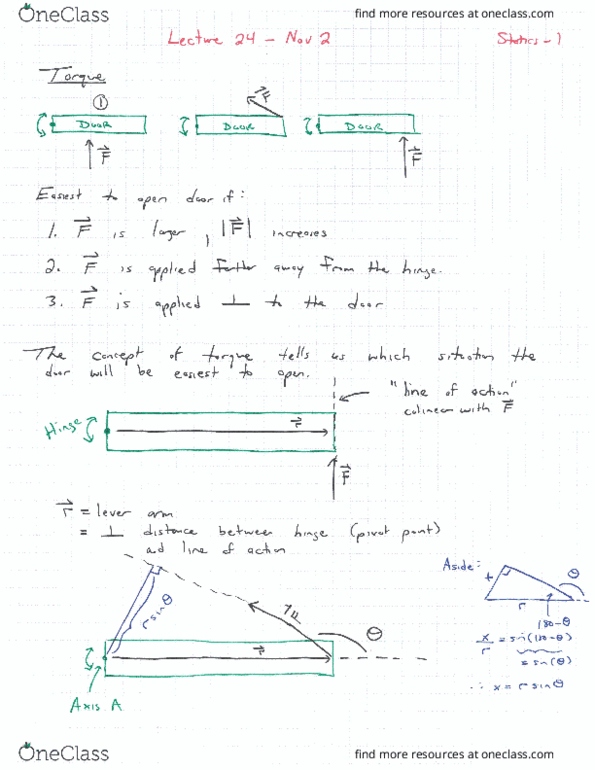 OneClass find more resources at oneclass.com
Lecture 24 - Nov 2 Statics - 1
Torque
①
F
DOOR DOOR DOOR
F F
Easiest to open door if:
1. F is larger, |F| increases
2. F is applied farther away from the hinge.
3. F is applied ⊥ to the door
The concept of torque tells us which situation the
door will be easiest to open.
"line of action"
colinear with F
Hinge
r
F
r = lever arm
= ⊥ distance between hinge (pivot point)
and line of action
Aside:
θ
x
r
180-θ
x/r = sin(180-θ)
= sin(θ)
∴ x = r sinθ
r sinθ
F
θ
r
Axis A
OneClass find more resources at oneclass.com